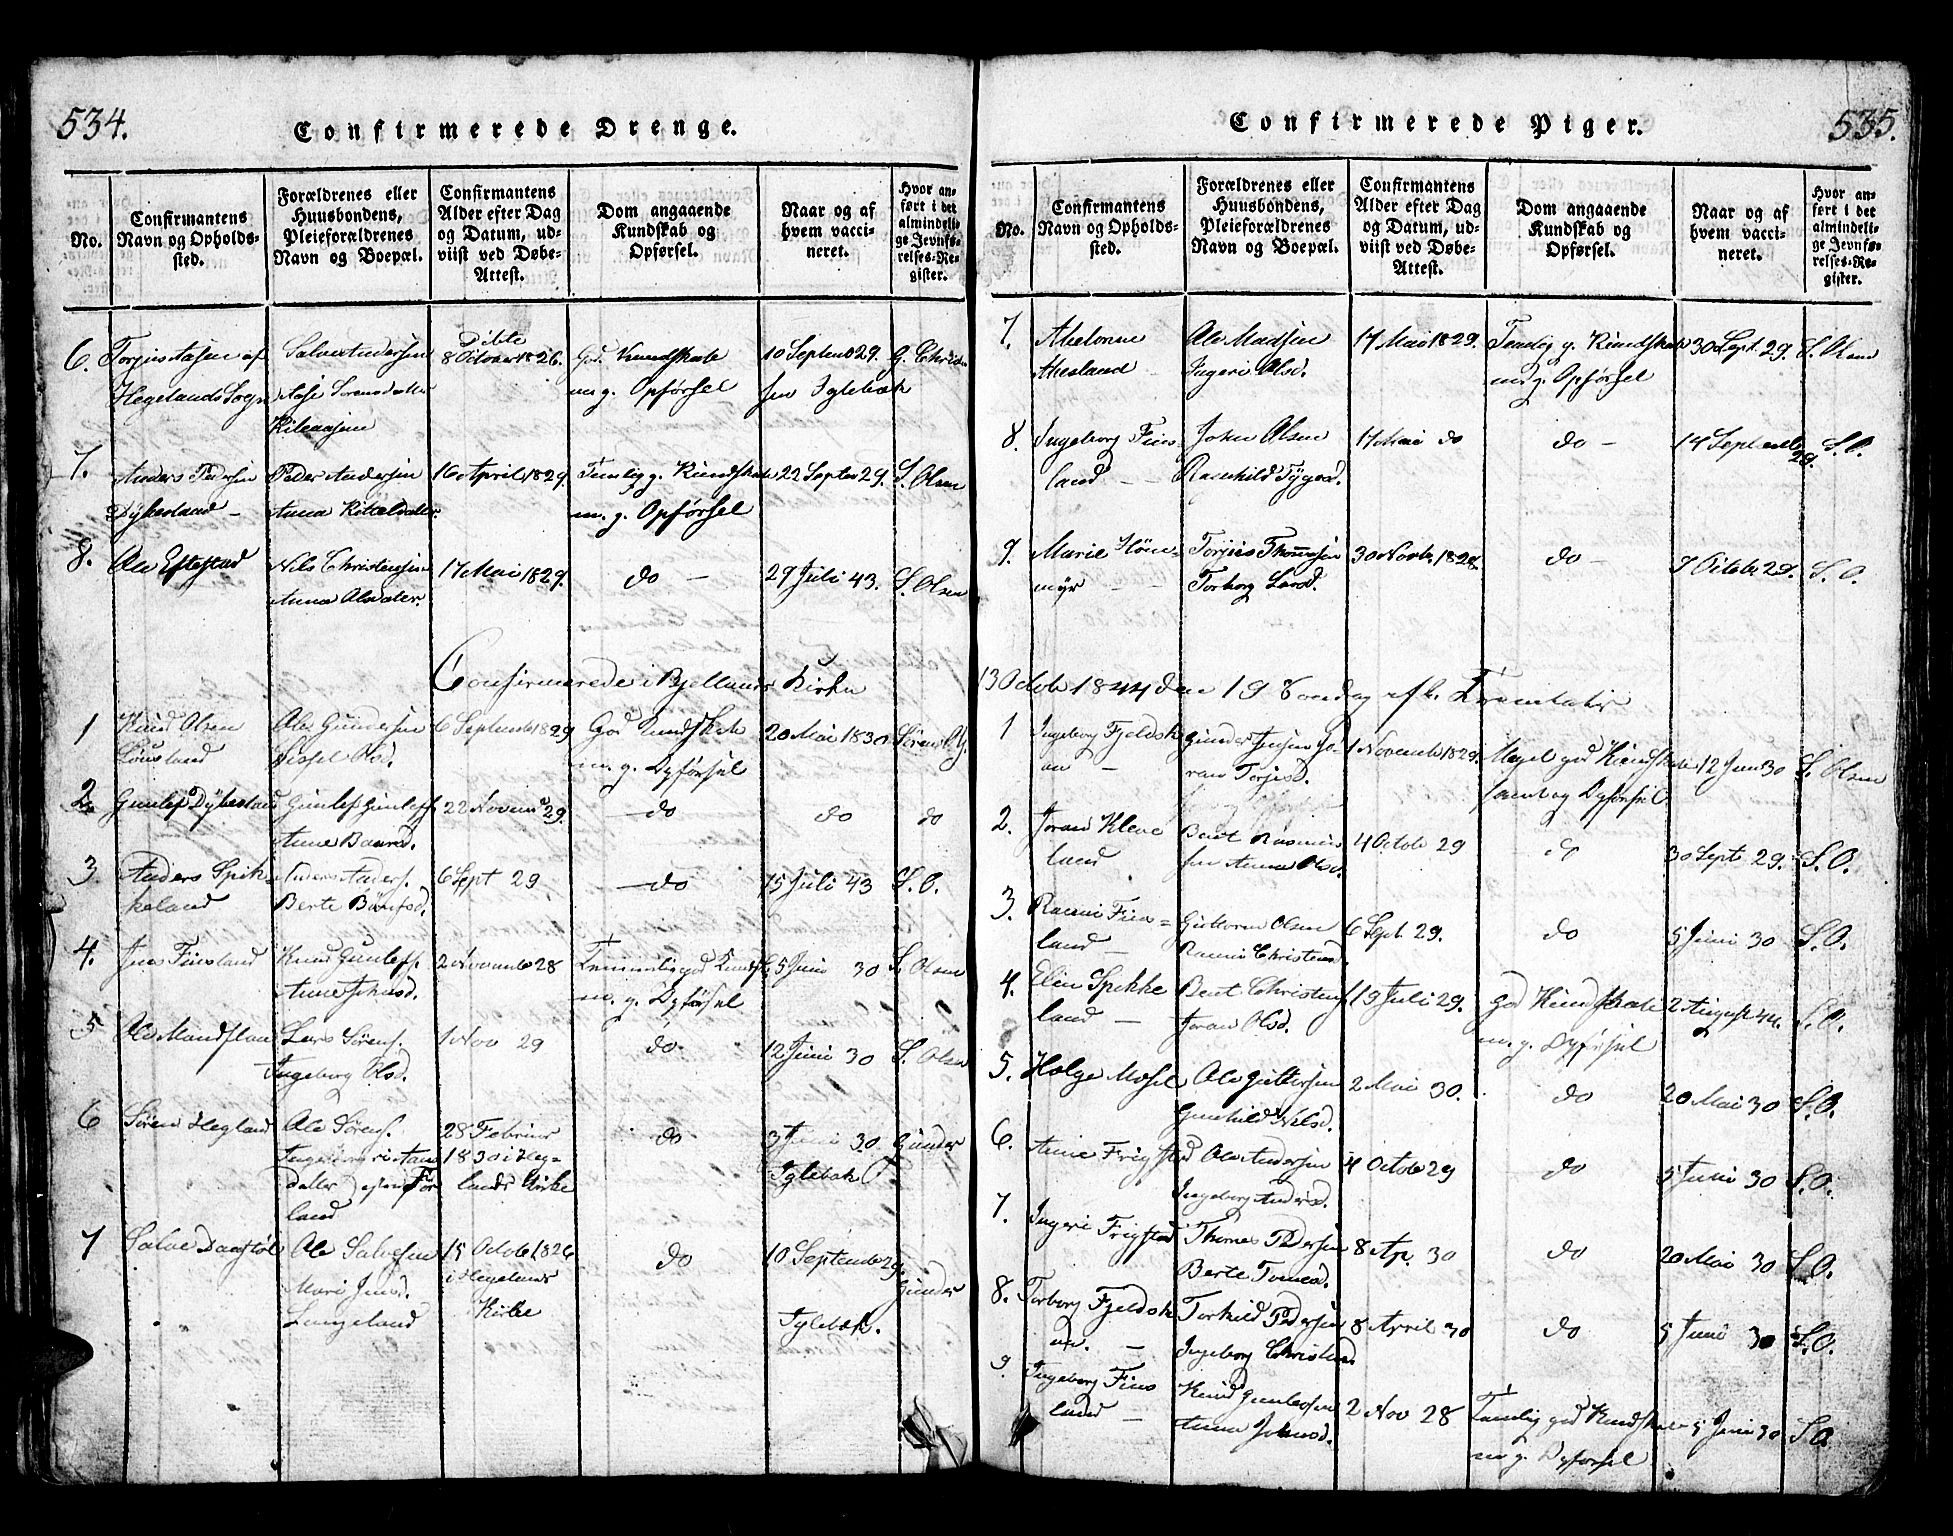 534.
Confirmerede Drenge.
No.
Confirmantens
Navn og Opholds-
sted.
Forældrenes eller
Huusbondens,
Pleieforældrenes
Navn og Boepæl.
Confirmantens
Alder efter Dag
og Datum, ud-
viist ved Døbe-
Attest.
Dom angaaende
Kundskab og
Opførsel.
Naar og af
hvem vacci-
neret.
Hvor an-
ført i det
almindeli-
ge Jevnfø-
relses-Re-
gister.
6.
af
Hegelands Sogn
Salve Andersen
Døbte
8 October 1826.
God Kundskab
m. g. Opførsel
10 Septemb 29.
Iglebæk
7.
Anders Pedersen
Dykesland -
Peder Andersen
Anna Kittelsdatter.
16 April 1829.
Temlig g. Kundskab
m. g. Opførsel
22 Septer 29.
S. Olsen
8.
Ole Eftestad
Nils Christensen
Anna Olsdater.
17 Mai 1829.
do -
29 Juli 43.
S. Olsen
Confirmerede i Bjellands Kirke
1
Knud Olsen
Ole Gundersen
Sissel Olsd.
6 Septemb 1829
God Kundskab
m. g. Opførsel
20 Mai 1830
2.
Gunlef Dykesland
Gunlef Gunlefs.
Anne Baard.
22 Novem 29.
do
do
do
3.
Anders Spik-
keland
Anders Anders.
Berte
6 Sept 29
do
15 Juli 43
S. O.
4.
Jens Finsland
Knud Gunlefs.
Anne Johnsd.
2 Novemb 28
Temmelig god Kundsk.
m. g. Opførsel
5 Juni 30
S. Olsen
5
Ole
Lars Sørens.
Ingeborg Olsd.
1 Nov 29
do.
12 Juni 30
S. Olsen
6
Søren Hegland
Ole Sørens.
28 Februar
1830 i Heg-
lands Kirke
do
3 Juni 30.
Iglebæk
Gunder
7
Salve
Ole Salvesen
Mari
Langeland
15 Octob 1826
i Hegelands
Kirke
do
10 Septemb 29.
Iglebæk.
Gunder
535.
Confirmerede Piger.
No.
Confirmantens
Navn og Opholds-
sted.
Forældrenes eller
Huusbondens,
Pleieforældrenes
Navn og Boepæl.
Confirmantens
Alder efter Dag
og Datum, ud-
viist ved Døbe-
Attest.
Dom angaaende
Kundskab og
Opførsel.
Naar og af
hvem vacci-
neret.
Hvor an-
ført i det
almindeli-
ge Jevnfø-
relses-Re-
gister.
7.
Ole Madsen
Ingeri Olsd.
17 Mai 1829.
Temlig g. Kundskab
m. g. Opførsel
30 Sept. 29.
S. Olsen
8.
Ingeborg Fins-
land -
John Olsen
17 Mai do
do -
14 Septemb
29.
S. O.
9.
Marie
myr -
Torjus
Torborg
30 Novb. 1828.
do -
7 Octob 29.
S. O.
13 Octob 1844 den 19 Søndag eft. Trinitatis
1
Ingeborg Fjeldsk
aa -
Gunder Jensen
Torjusd.
1 Novemb 1829.
Meget god Kundskab
samt og Opførsel
12 Juni 30
S. Olsen
2.
Joran Kleve
land
Bent Rasmus
sen Anna Olsd.
4 Octob 29
do
30 Sept 29.
S. O.
3.
Fins=
land -
Guttorm Olsen
Christensd.
6 Sept. 29.
do
5 Juni 30
S. O.
4.
Elin Spikke
land -
Bent Christens
Joran Olsd.
19 Juli 29.
God Kundskab
m. g. Opførsel
2 August 44.
S. O.
5.
Helge Mosel
Ole Guttormsen
Gunhild Nilsd.
2 Mai 30.
do
20 Mai 30
S. O.
6.
Anne Frigstad
Ole Andersen
Ingeborg Andersd.
4 Octob 29
do
5 Juni 30
S. O.
7.
Ingeri Frigstad
Thomes Pedersen
Berte Tomesd.
8 Apr. 30
do
20 Mai 30
S. O.
8.
Torborg Fjeldsk
aa. -
Torkild Pedersen
Ingeborg Christensd
8 April 30
do
5 Juni 30
S. O.
9
Ingeborg Fins
land -
Knud Gunlefsen
Anna Johnsd.
2 Nov 28
Temlig god Kundskab
m g. Opførsel
5 Juni 30
S. O